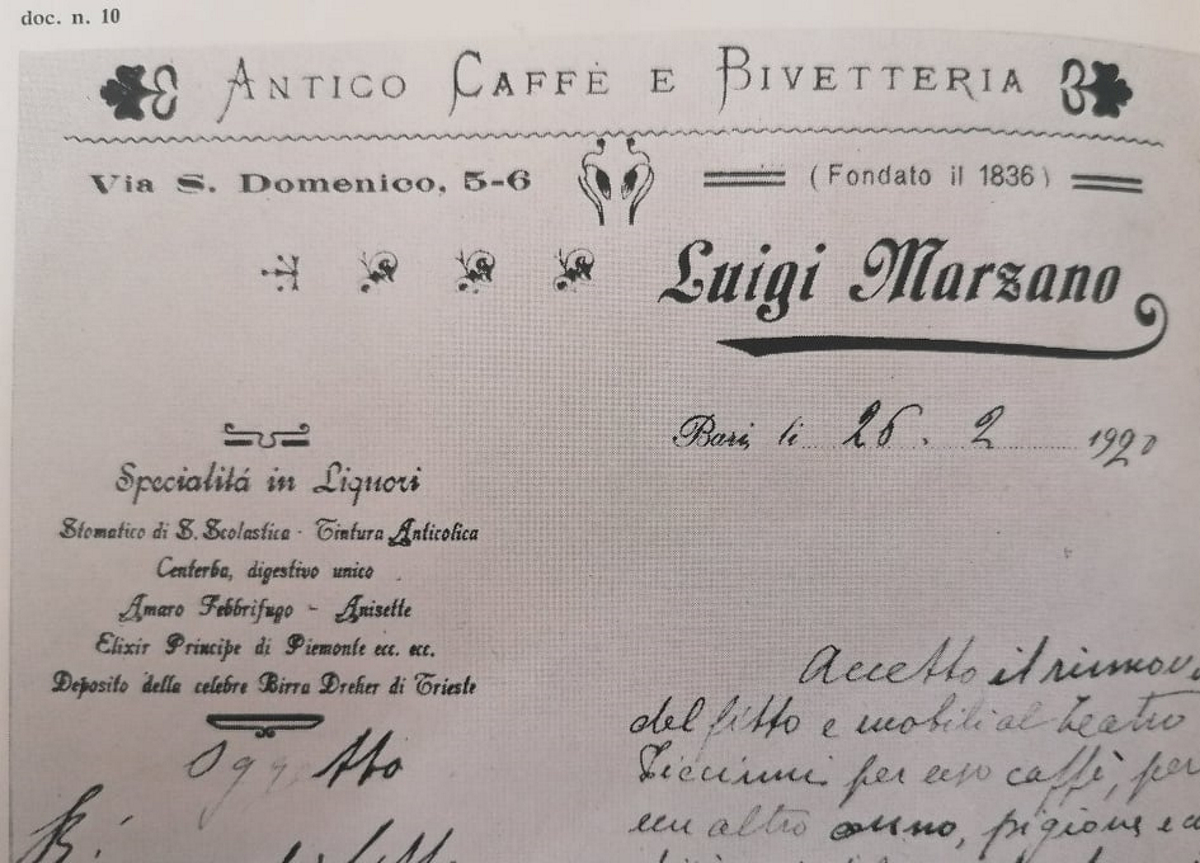 doc. n. 10
ANTICO CAFFÈ E BIVETTERIA
Via S. Domenico, 5-6
(Fondato il 1836)
Luigi Marzano
Bari, li 26. 2 1920
Specialitá in Liquori
Stomatico di S. Scolastica - Tintura Anticolica
Centerba, digestivo unico
Amaro Febbrifugo - Anisette
Elixir Principe di Piemonte ecc. ecc.
Deposito della celebre Birra Dreher di Trieste
Oggetto
Accetto il rinnov
del fitto e mobili al teatro
Piccinni per uso caffè, per
un altro anno, pigione e